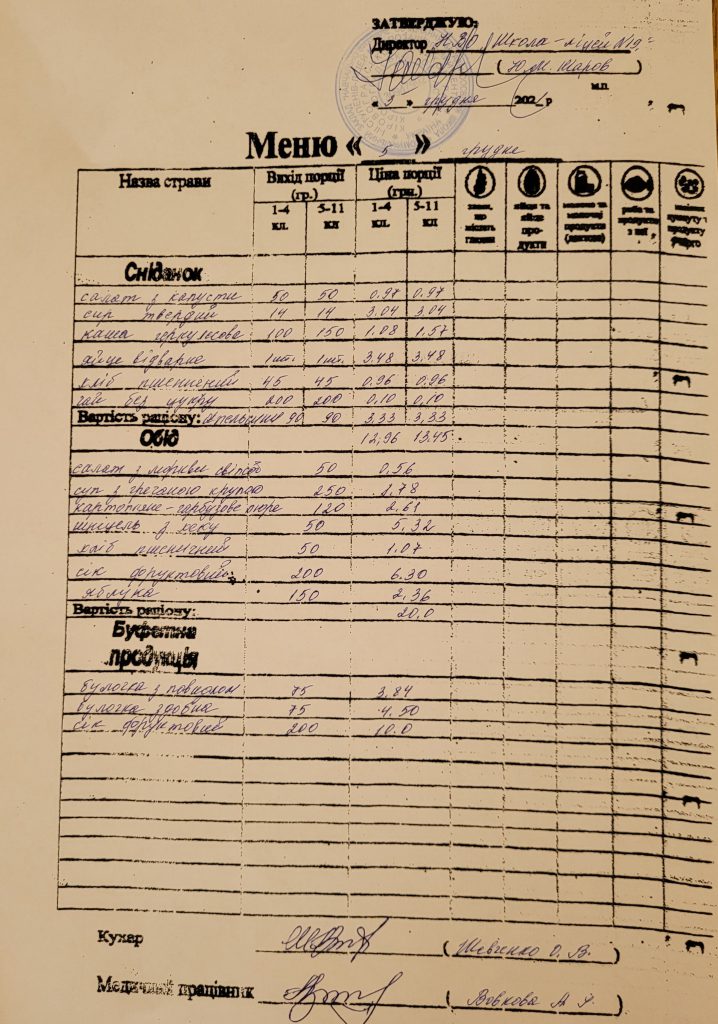 ЗАТВЕРДЖУЮ:
Директор НВО "Школа-ліцей №19"
(Ю.М. Жаров)
м.п.
« 3 » грудня 2021 р
Меню « 5 » грудня
Назва страви Вихід порції (гр.) Ціна порції (грн.)
1-4 кл. 5-11 кл 1-4 кл. 5-11 кл
злаки, що містять глютен
яйця та яйце продукти
молоко та молочні продукти (лактоза)
риба та продукти з неї
Сніданок
салат з капусти 50 50 0,97 0,97
сир твердий 14 14 3.04 3,04
каша геркулесова 100 150 1.08 1,57
яйце відварне 1шт. 1шт. 3,48 3,48
хліб пшеничний 45 45 0,96 0,96
чай без цукру 200 200 0,10 0,10
Вартість раціону: апельсини 90 90 3,33 3,33
Обід 12,96 13.45
салат з моркви свіжої 50 0,56
суп з гречаною крупою 250 1.78
картопляне-гарбузове пюре 120 2.61
шніцель з хеку 50 5,32
хліб пшеничний 50 1.07
сік фруктовий 200 6.30
яблука 150 2,36
Вартість раціону: 20,0
Буфетна продукція
булочка з повидлом 75 3,84
булочка здобна 75 4,50
сік фруктовий 200 10.0
Кухар (Шевченко О. В.)
Медичний працівник (Вовкова